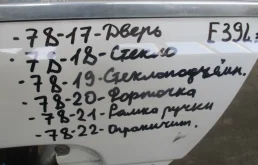 -78-17-Дверь F39L
-78-18-Стекло
-78-19-Стеклоподъёмн.
-78-20-Форточка
-78-21-Рамка ручки
-78-22-Ограничит.